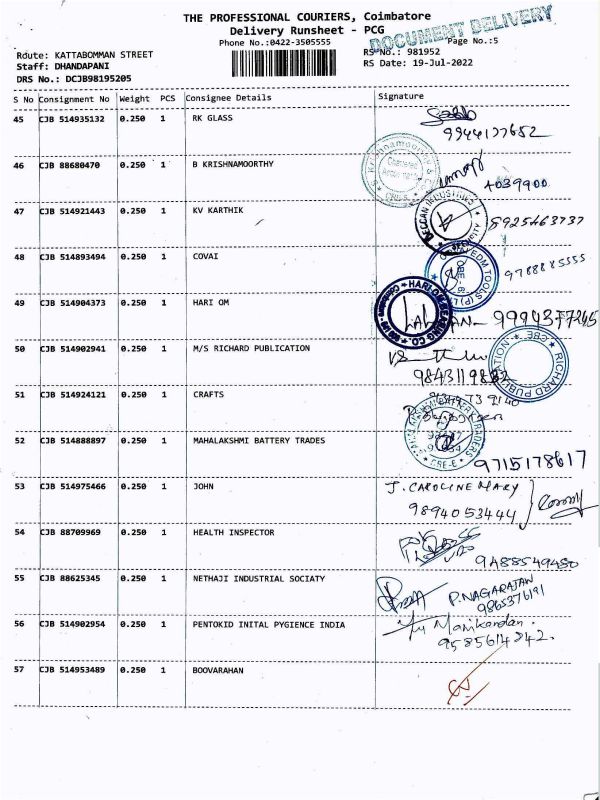 THE PROFESSIONAL COURIERS, Coimbatore
Delivery Runsheet - PCG
DOCUMENT DELIVERY
Phone No.:0422-3505555
Page No.:5
Route: KATTABOMMAN STREET
RS No.: 981952
Staff: DHANDAPANI
RS Date: 19-Jul-2022
DRS No.: DCJB98195205
S No Consignment No Weight PCS Consignee Details Signature
45 CJB 514935132 0.250 1 RK GLASS
9944127652
46 CJB 88680470 0.250 1 B KRISHNAMOORTHY
4039900
47 CJB 514921443 0.250 1 KV KARTHIK
8925463737
48 CJB 514893494 0.250 1 COVAI
9788885555
49 CJB 514904373 0.250 1 HARI OM
9994377245
50 CJB 514902941 0.250 1 M/S RICHARD PUBLICATION
RICHARD PUBLICATION
51 CJB 514924121 0.250 1 CRAFTS
52 CJB 514888897 0.250 1 MAHALAKSHMI BATTERY TRADES
9715178617
53 CJB 514975466 0.250 1 JOHN
J. CAROLINE MARY
9894053444
54 CJB 88709969 0.250 1 HEALTH INSPECTOR
9488549480
55 CJB 88625345 0.250 1 NETHAJI INDUSTRIAL SOCIATY
P. NAGARAJAN
9865376191
56 CJB 514902954 0.250 1 PENTOKID INITAL PYGIENCE INDIA
Manikandan.
9585614342.
57 CJB 514953489 0.250 1 BOOVARAHAN